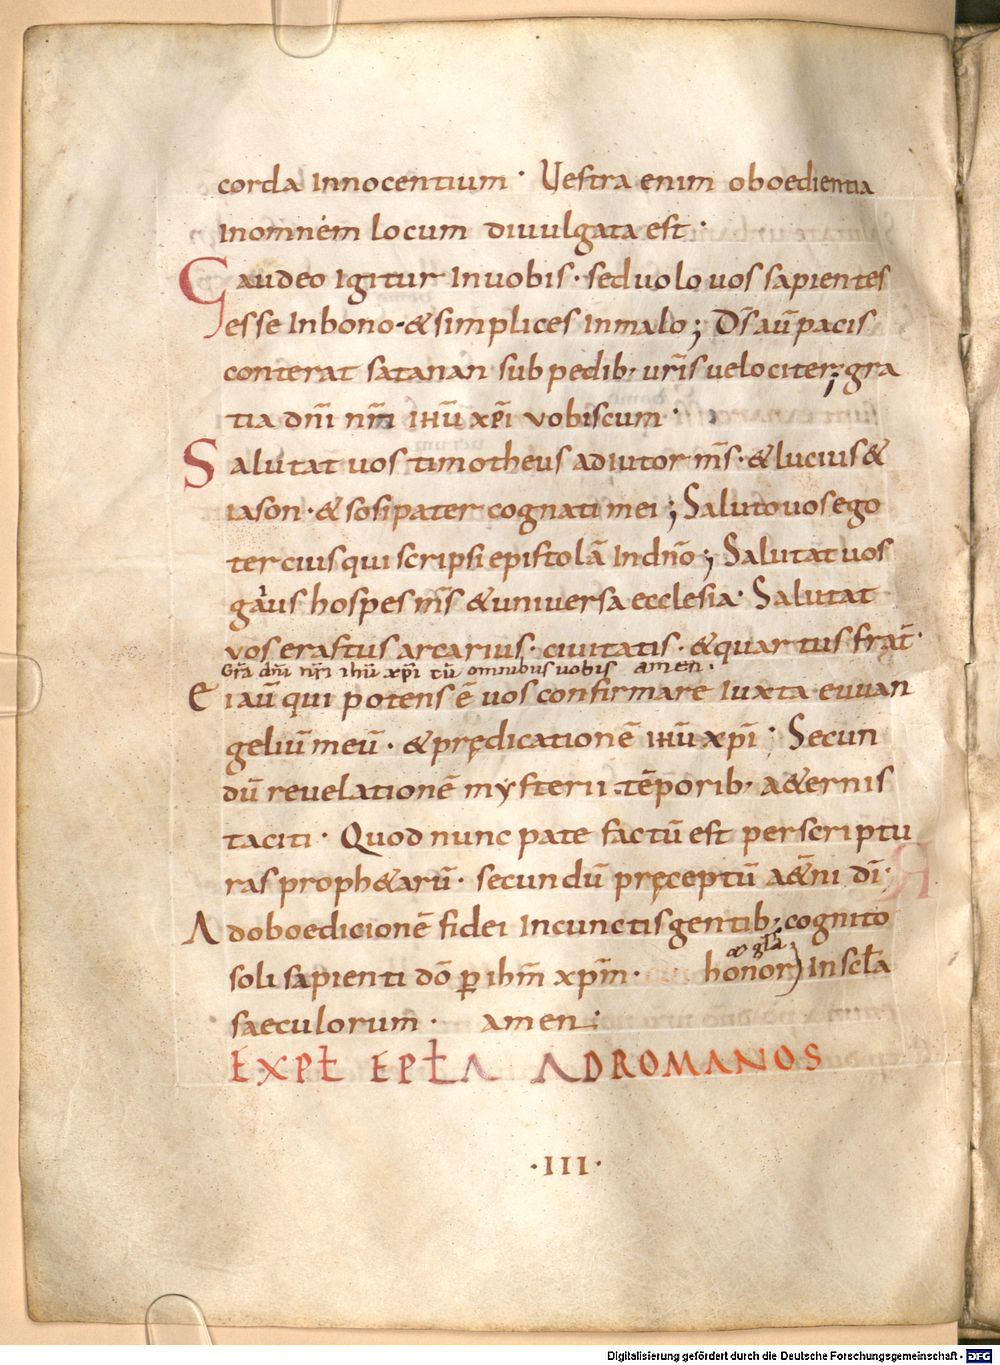 corda Innocentium · Uestra enim oboedientia
Inomnem locum diuulgata est ·
Gaudeo Igitur Inuobis · sed uolo uos sapientes
esse Inbono · & simplices Inmalo ; Ds̄ aū pacis
conterat satanan sub pedib; ur̄is uelociter ; gra
tia dn̄i nr̄i ihū xp̄i vobiscum ·
Salutat uos timotheus adiutor m̄s · & lucius &
iason · & sosipater cognati mei ; Saluto uos ego
tercius qui scripsi epistolā Indn̄o ; Salutat uos
gaius hospes m̄s & universa ecclesia · Salutat
vos erastus arcarius · ciuitatis · & quartus frat̄ ·
Gr̄a dn̄i nr̄i ihū xp̄i cū omnibus uobis amen ·
Ei aū qui potens ē uos confirmare Iuxta euuan
geliū meū · & prędicationē ihū xp̄i · Secun
dū revelationē mysterii tēporib; a&ernis
taciti · Quod nunc pate factū est per scriptu
ras proph&arū · secundū pręceptū a&n̄i dī ·
Adoboedicionē fidei Incunctis gentib; cognito
& gl̄a
soli sapienti dō ꝑ ihm̄ xp̄m · honor Inscl̄a
saeculorum · amen :
EXPŁ EPŁA ADROMANOS
· III ·
Digitalisierung gefördert durch die Deutsche Forschungsgemeinschaft - DFG